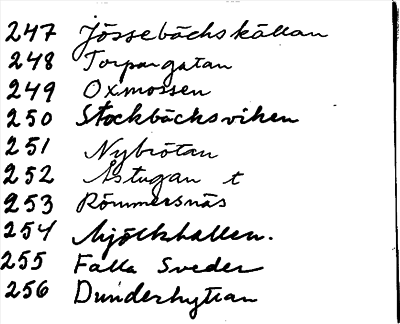 247 Jössebäckskällan
248 Torpargatan
249 Oxmossen
250 Stockbäcksviken
251 Nybrötan
252 Åstugan t
253 Römmersnäs
254 Mjölkhallen.
255 Falla Sveder
256 Dunderhyttan